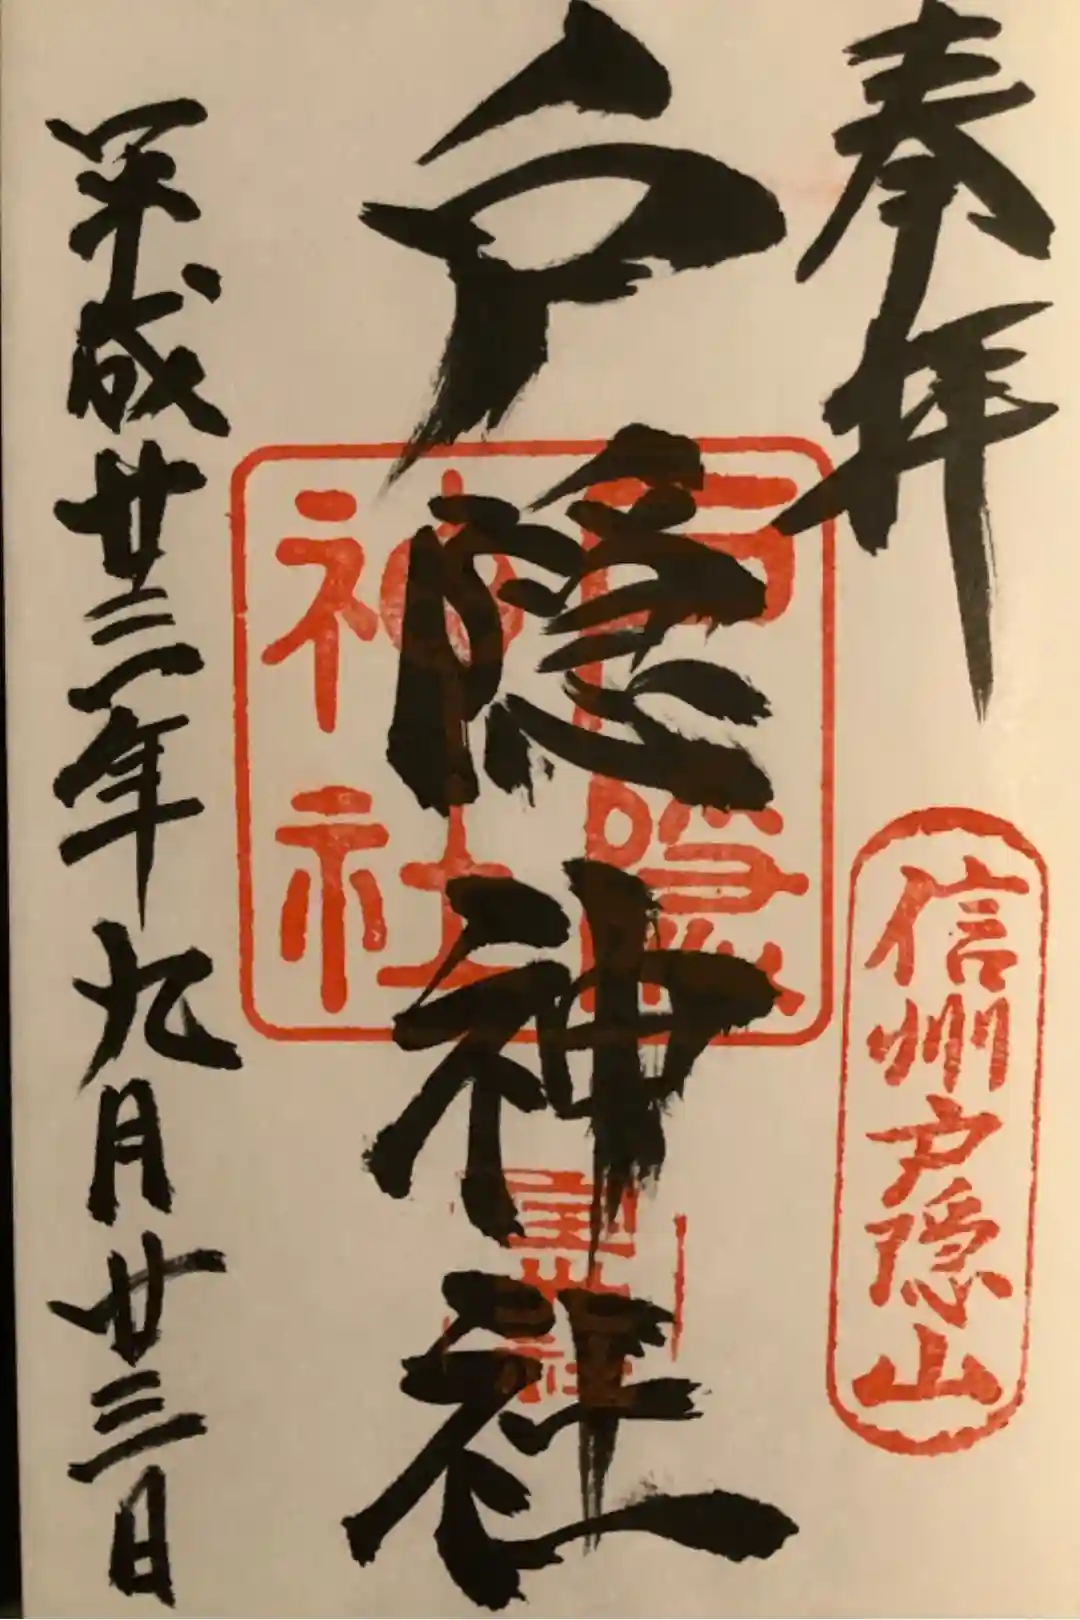 奉拝
信州戸隠山
戸隠神社
戸隠
神社
平成廿三年九月廿三日